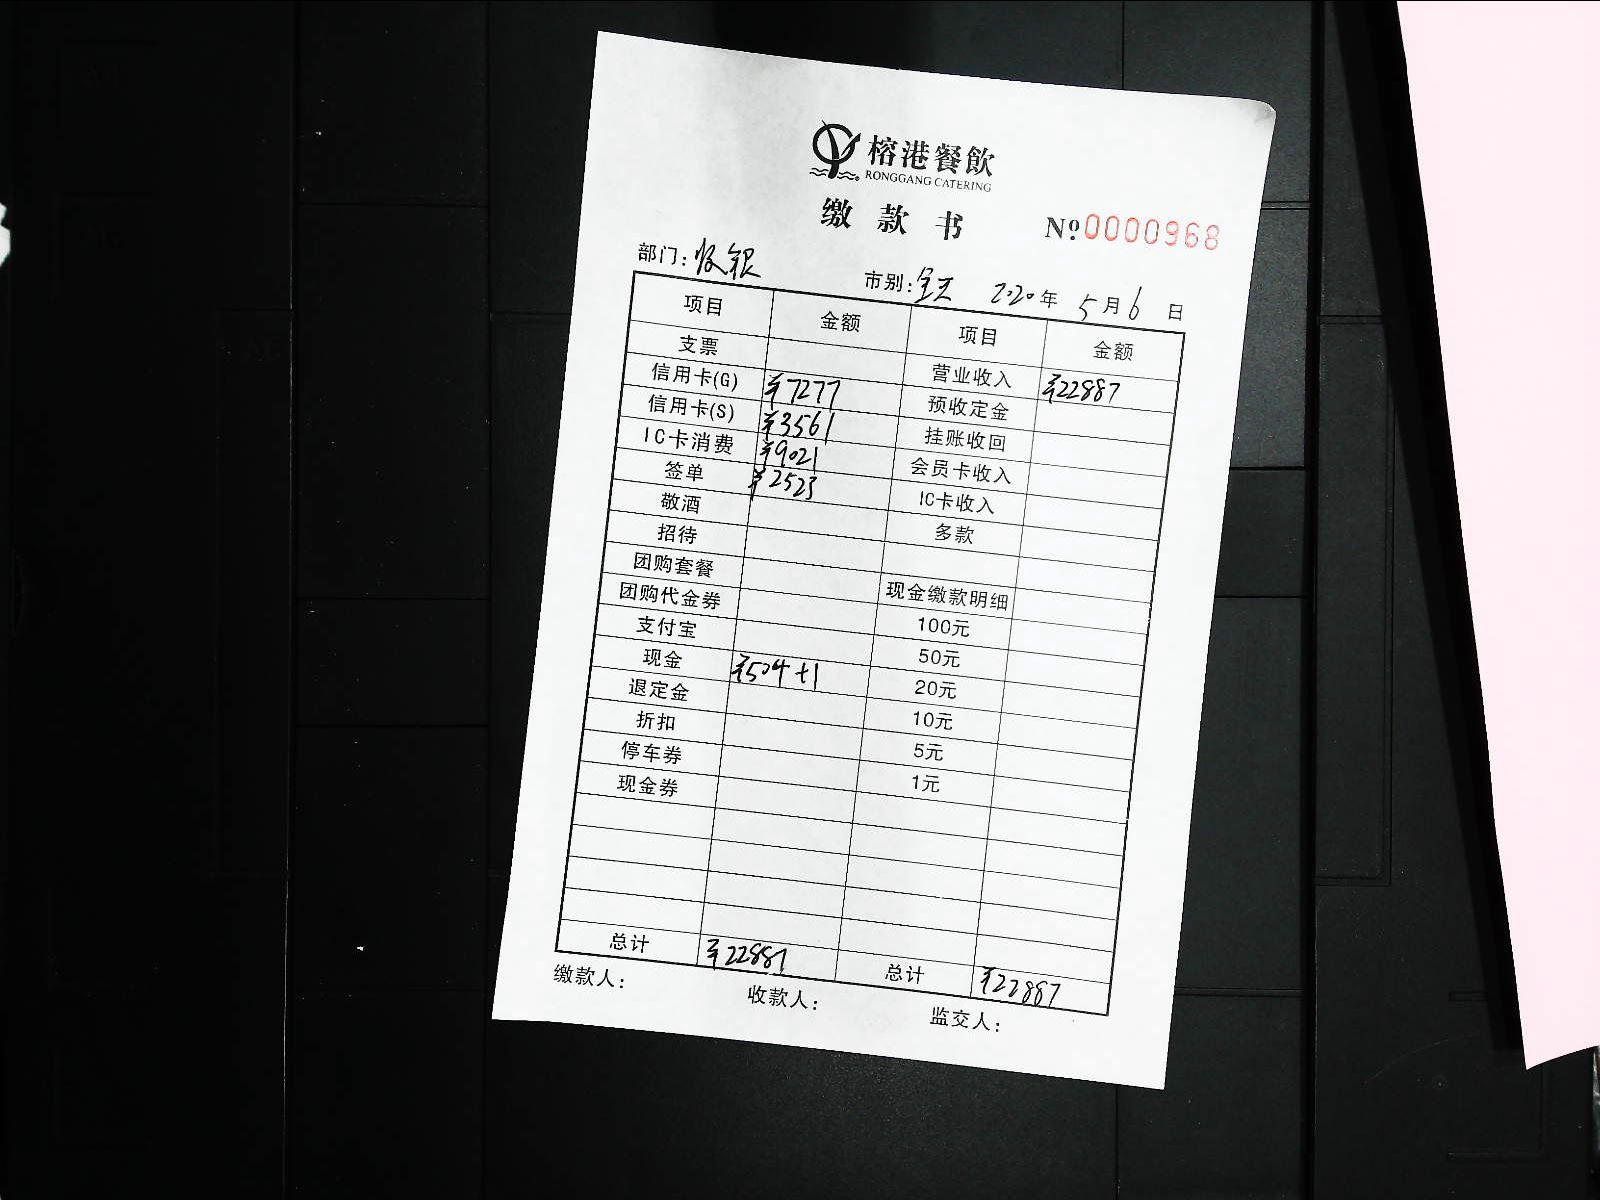 榕港餐飲
RONGGANG CATERING
缴款书 Nº0000968
部门: 收银 市别: 全天 2020年 5月6日
项目 金额 项目 金额
支票 营业收入 ¥22887
信用卡(G) ¥7277 预收定金
信用卡(S) ¥3561 挂账收回
IC卡消费 ¥9021 会员卡收入
签单 ¥2523 IC卡收入
敬酒 多款
招待
团购套餐 现金缴款明细
团购代金券 100元
支付宝 50元
现金 ¥504+1 20元
退定金 10元
折扣 5元
停车券 1元
现金券
总计 ¥22887 总计 ¥22887
缴款人: 收款人: 监交人: